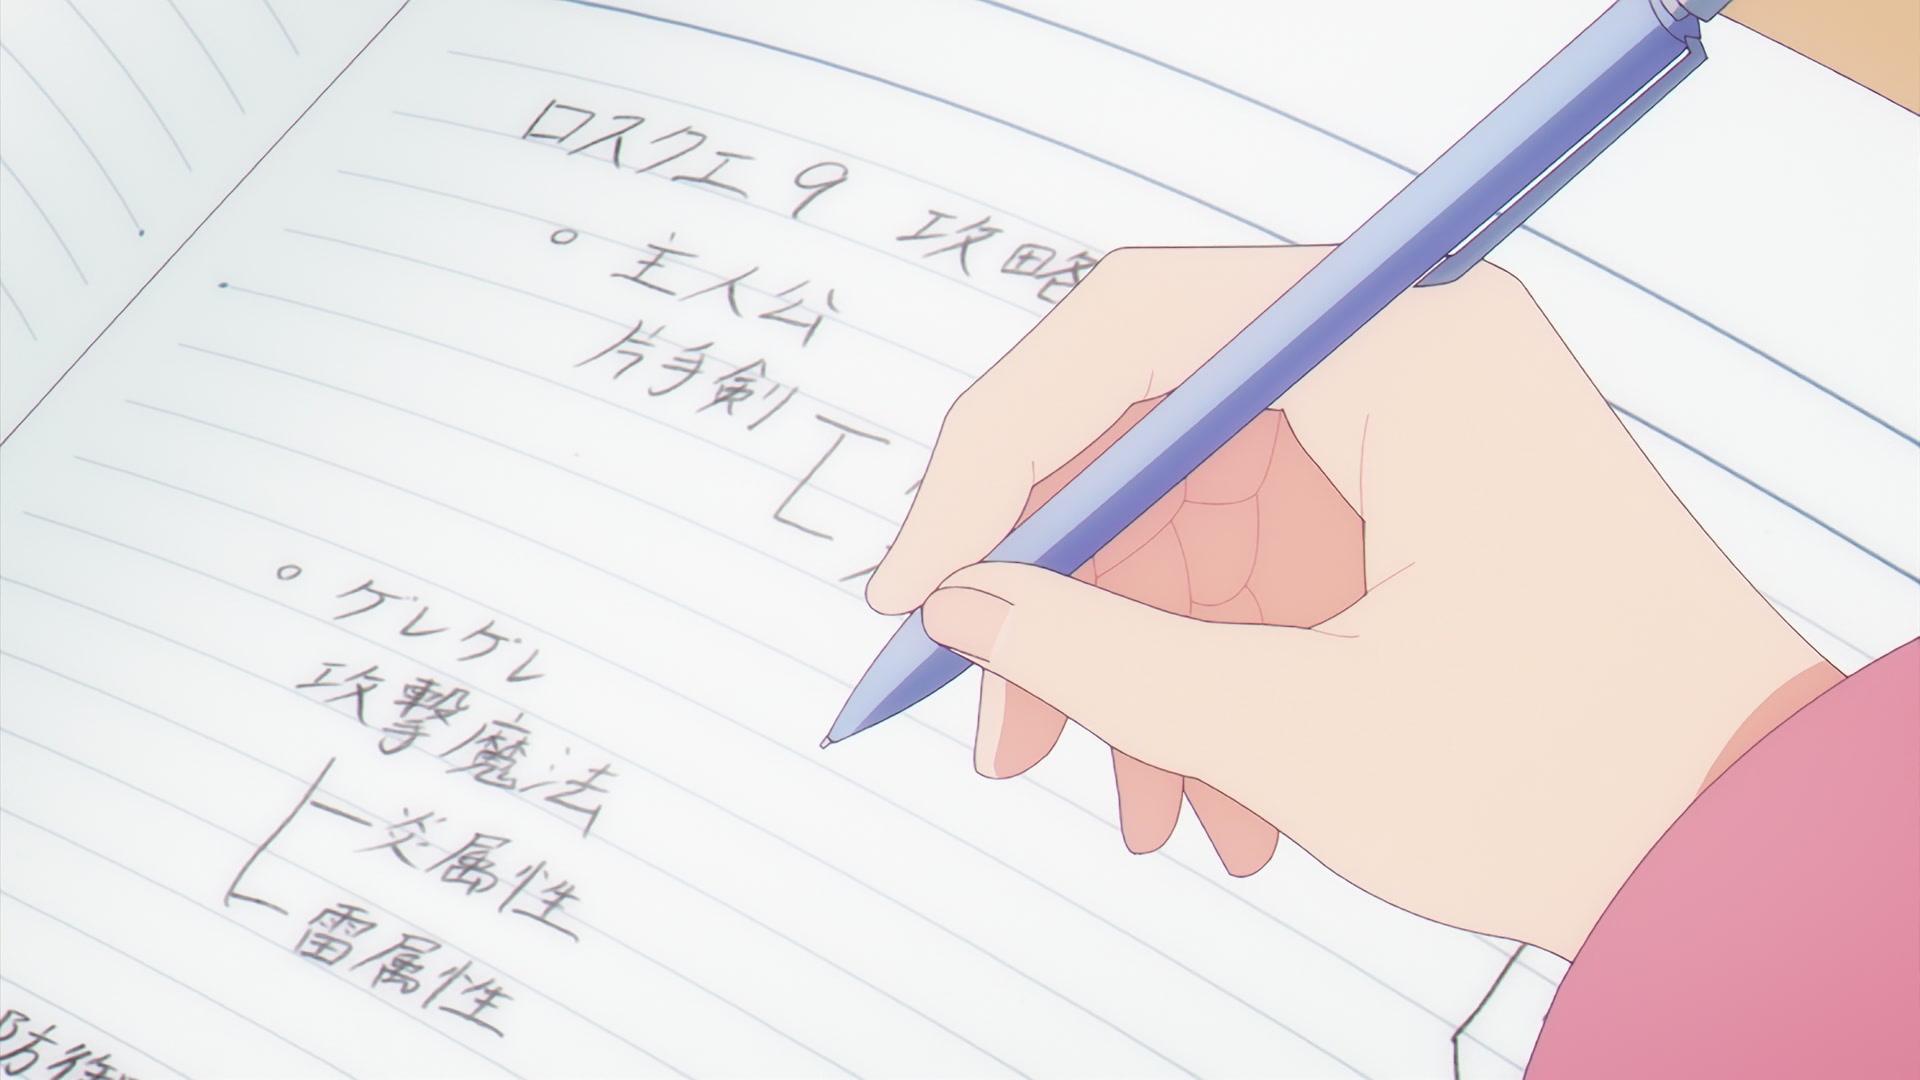 ロスクエ9 攻略
○ 主人公
片手剣
○ ゲレゲレ
攻撃魔法
炎属性
雷属性
防御